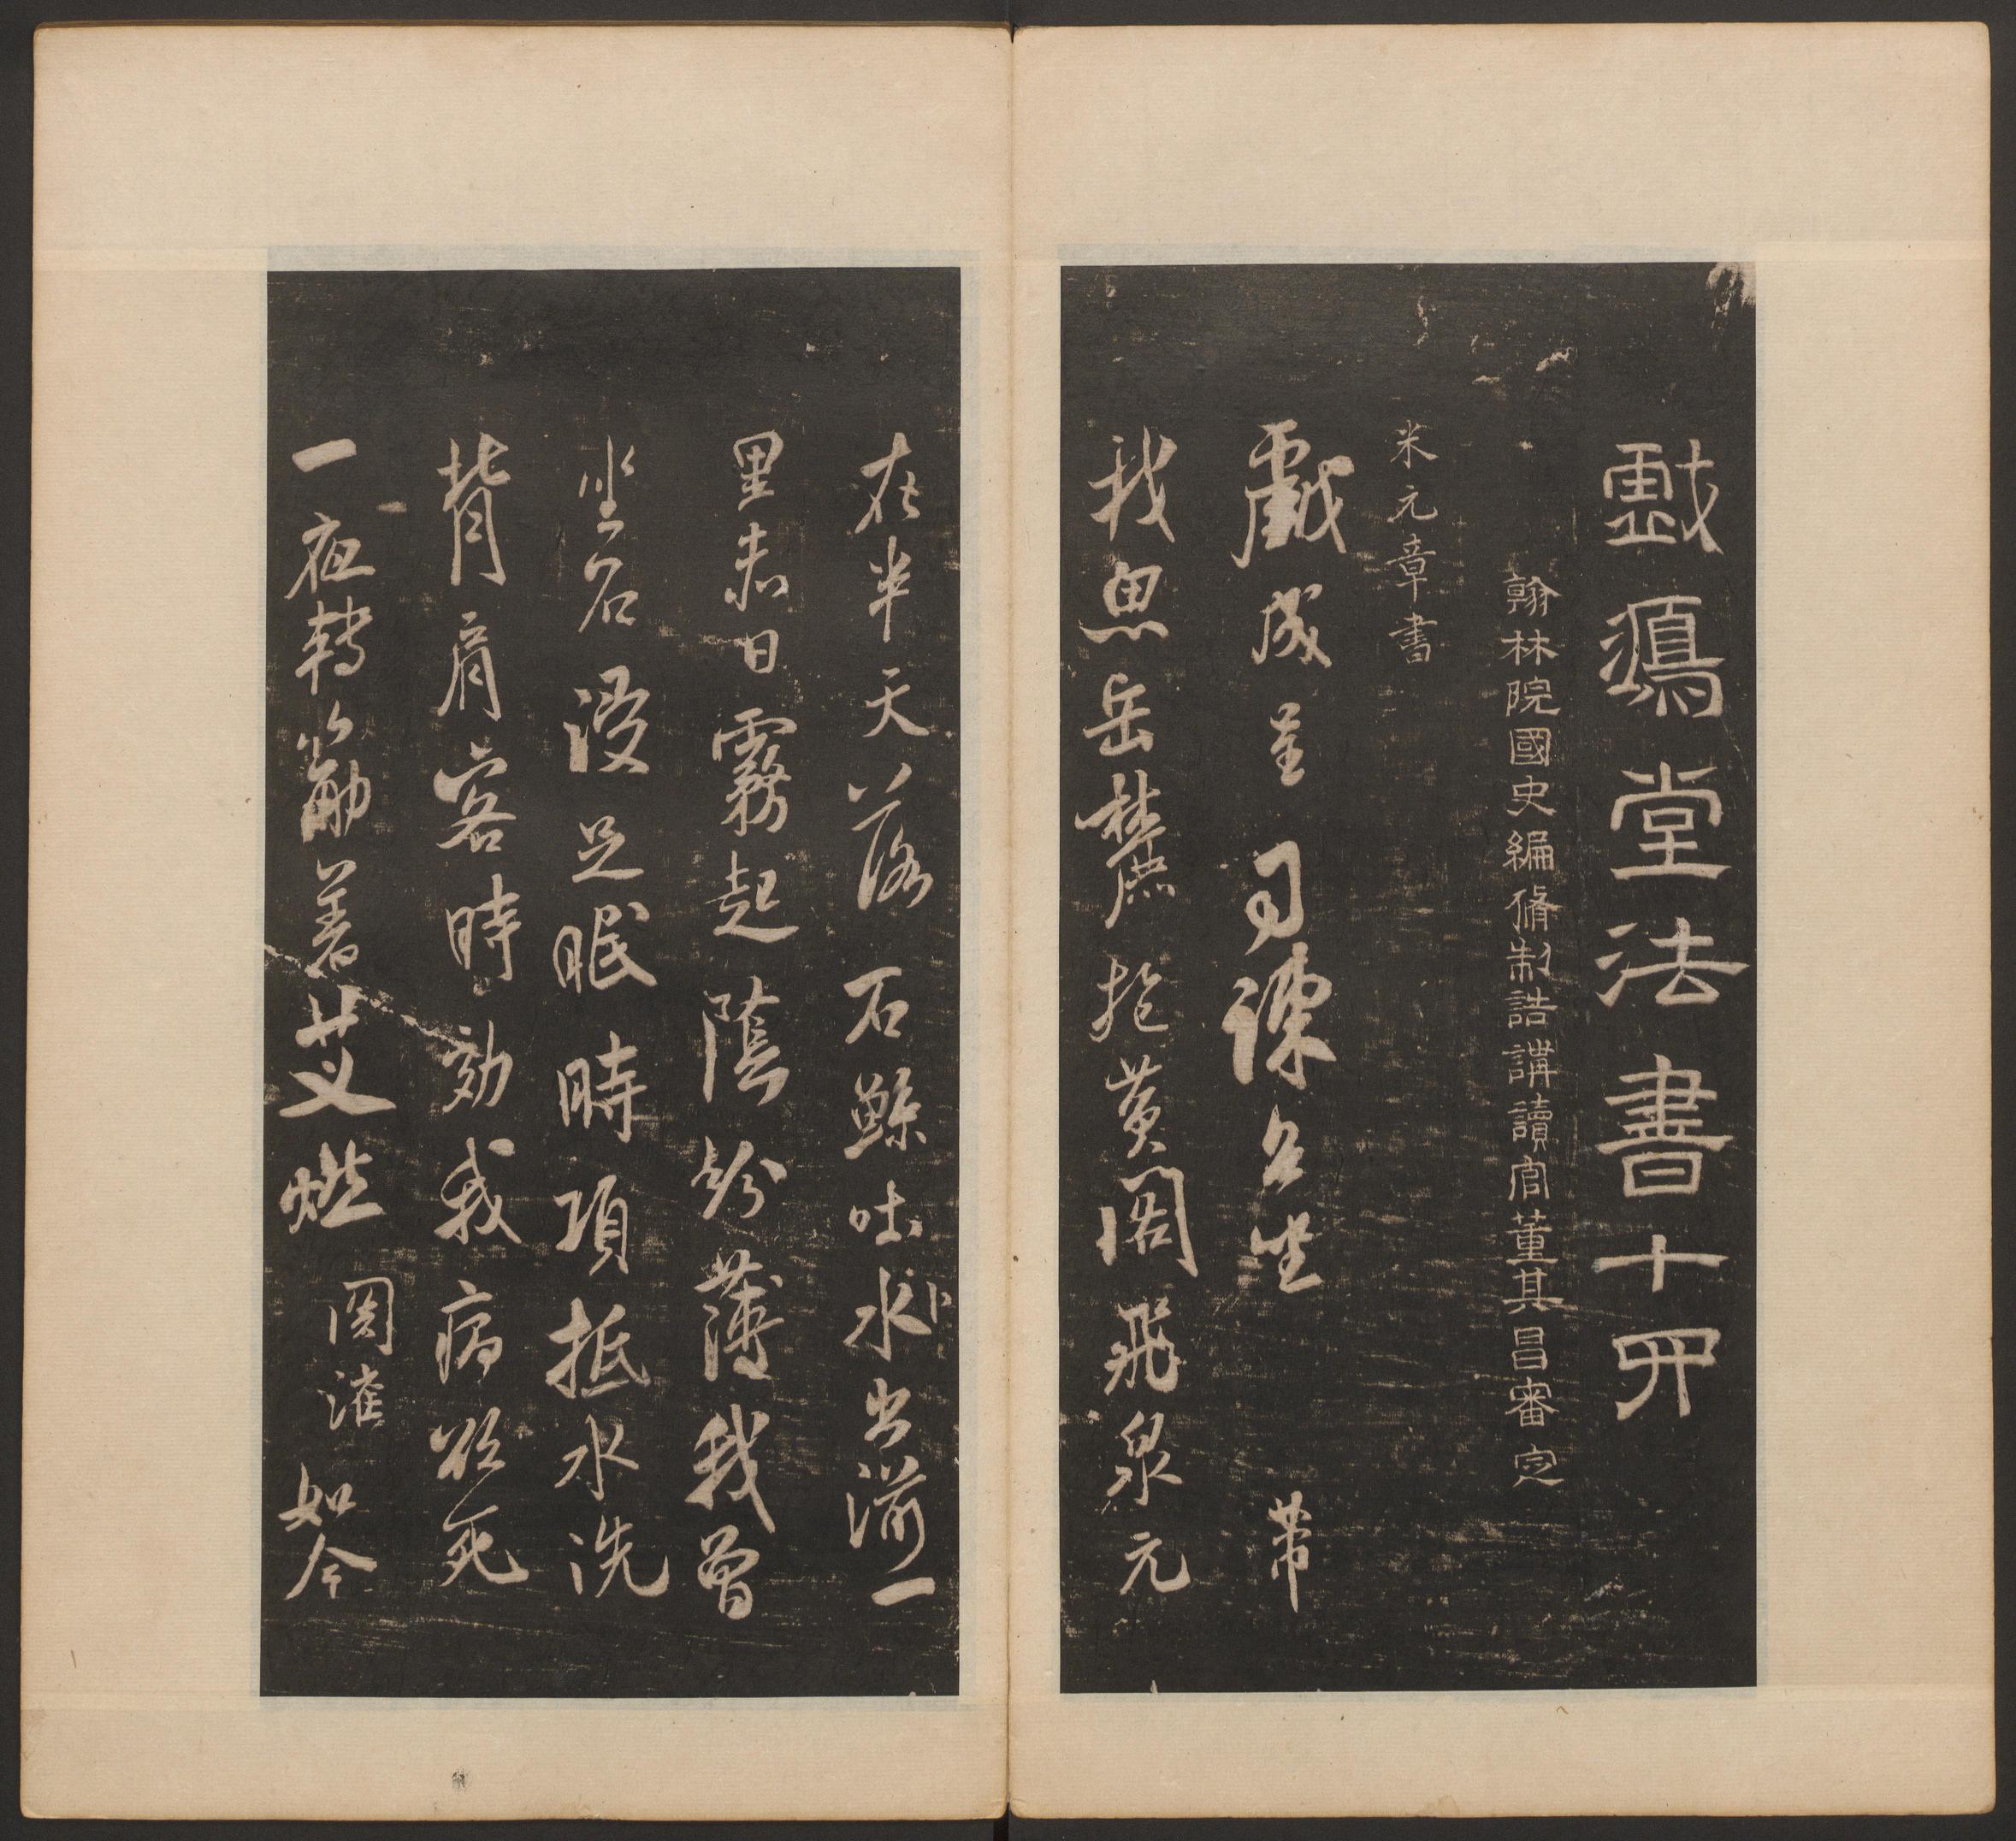 戲鴻堂法書十四
翰林院國史編脩制誥講讀官董其昌審定
米元章書
戲成呈司諫台坐 芾
我思岳麓抱黃閣飛泉元
在半天落石鯨吐水出湔一
里赤日霧起陰紛薄我曾
坐石浸足眠時項抵水洗
背肩客時効我病欲死
一夜轉筋著艾燃 関漼 如今